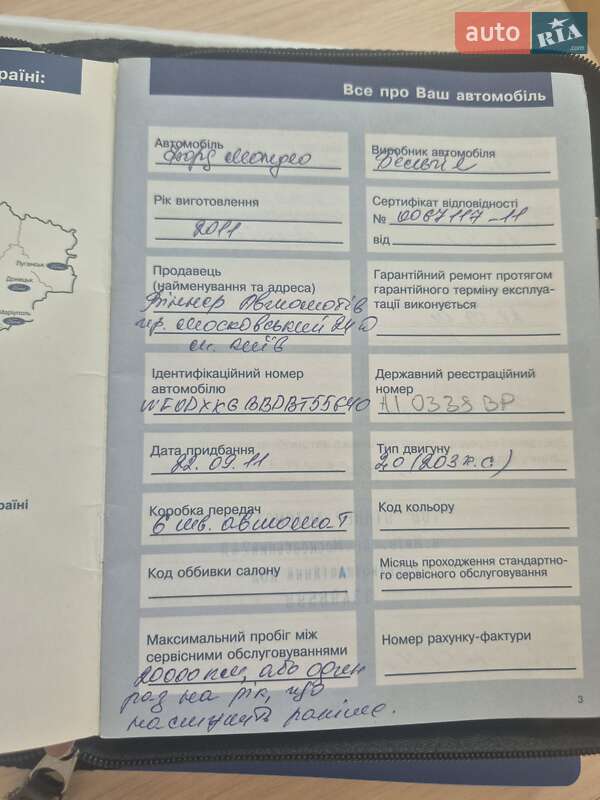 auto RIA .com
раїні:
Луганськ
Донецьк
Маріуполь
раїні
Все про Ваш автомобіль
Автомобіль
Форд Мондео
Виробник автомобіля
Бельгія
Рік виготовлення
2011
Сертифікат відповідності
№ 0067117-11
від
Продавець
(найменування та адреса)
Віннер Автомотів
пр. Московський 24 Ю
м. Київ
Гарантійний ремонт протягом
гарантійного терміну експлуа-
тації виконується
Ідентифікаційний номер
автомобілю
WF0DXXGBBDBT55640
Державний реєстраційний
номер
АІ 0338 ВР
Дата придбання
22.09.11
Тип двигуну
2,0 (203 к.с)
Коробка передач
6 шв. автомат
Код кольору
Код оббивки салону
Місяць проходження стандартно-
го сервісного обслуговування
Максимальний пробіг між
сервісними обслуговуваннями
20000 км, або один
раз на рік, що
наступить раніше.
Номер рахунку-фактури
3